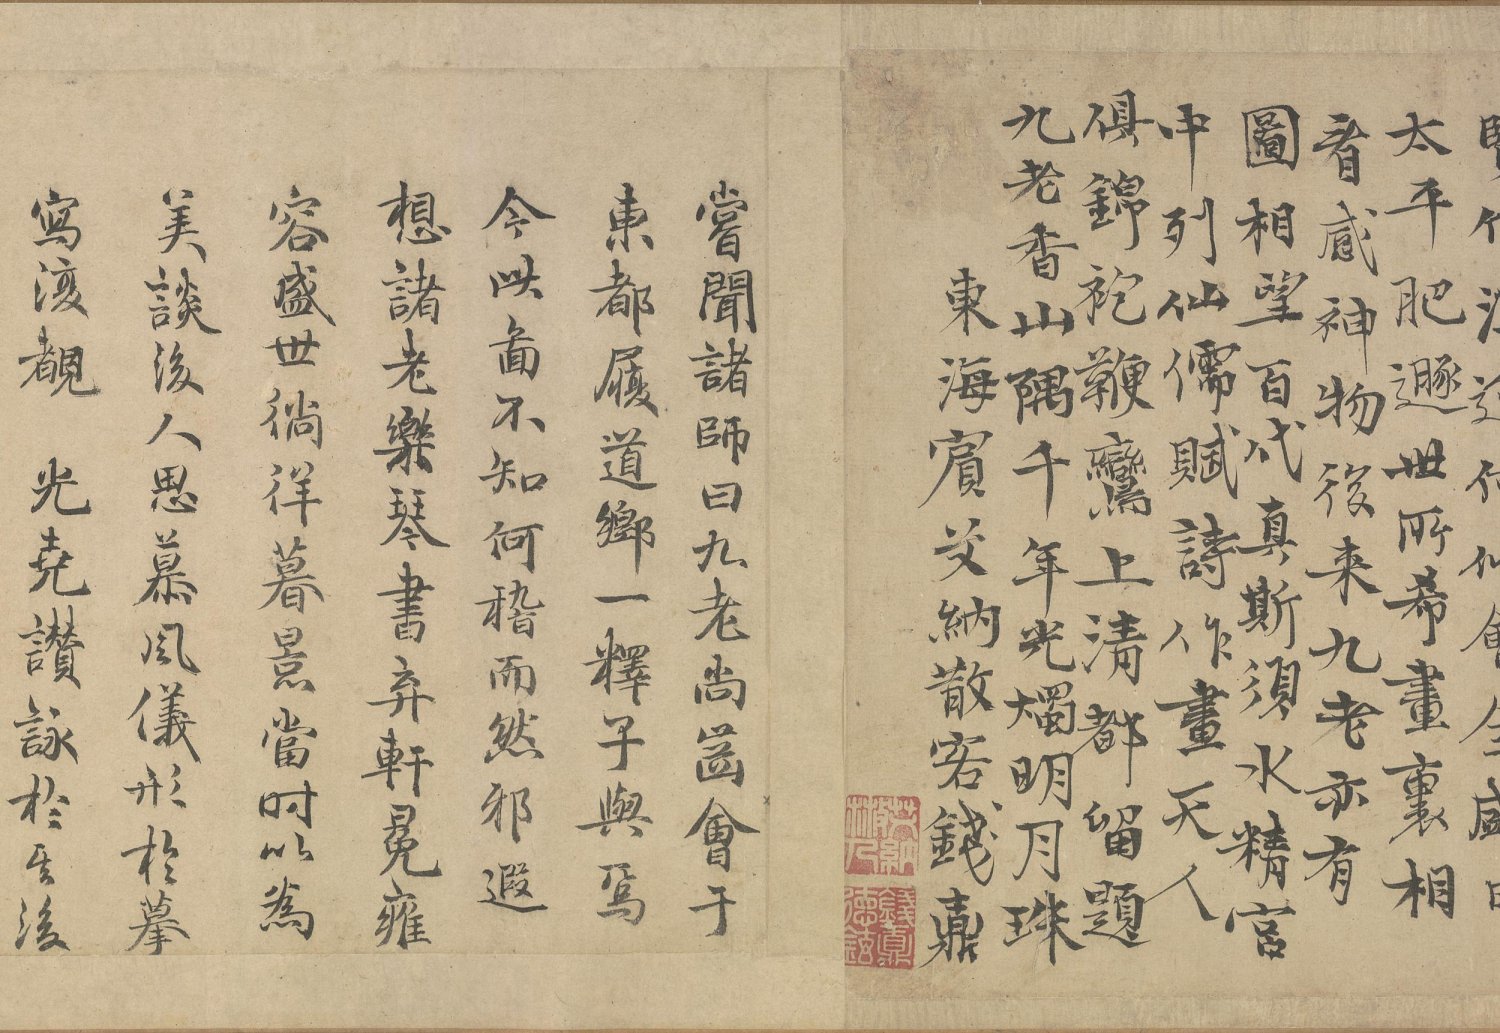 太平肥遯世所希畫裏相
看感神物後来九老亦有
圖相望百代真斯須水精宮
中列仙儒賦詩作畫天人
俱錦袍鞭鸞上清都留題
九老香山隅千年光燭明月珠
東海賓父納散客錢鼐
嘗聞諸師曰九老尚齒會于
東都履道鄉一釋子與焉
今此啚不知何稽而然邪遐
想諸老樂琴書弃軒冕雍
容盛世徜徉暮景當时以為
美談後人思慕風儀形於摹
寫復覩 光堯讃詠於其後